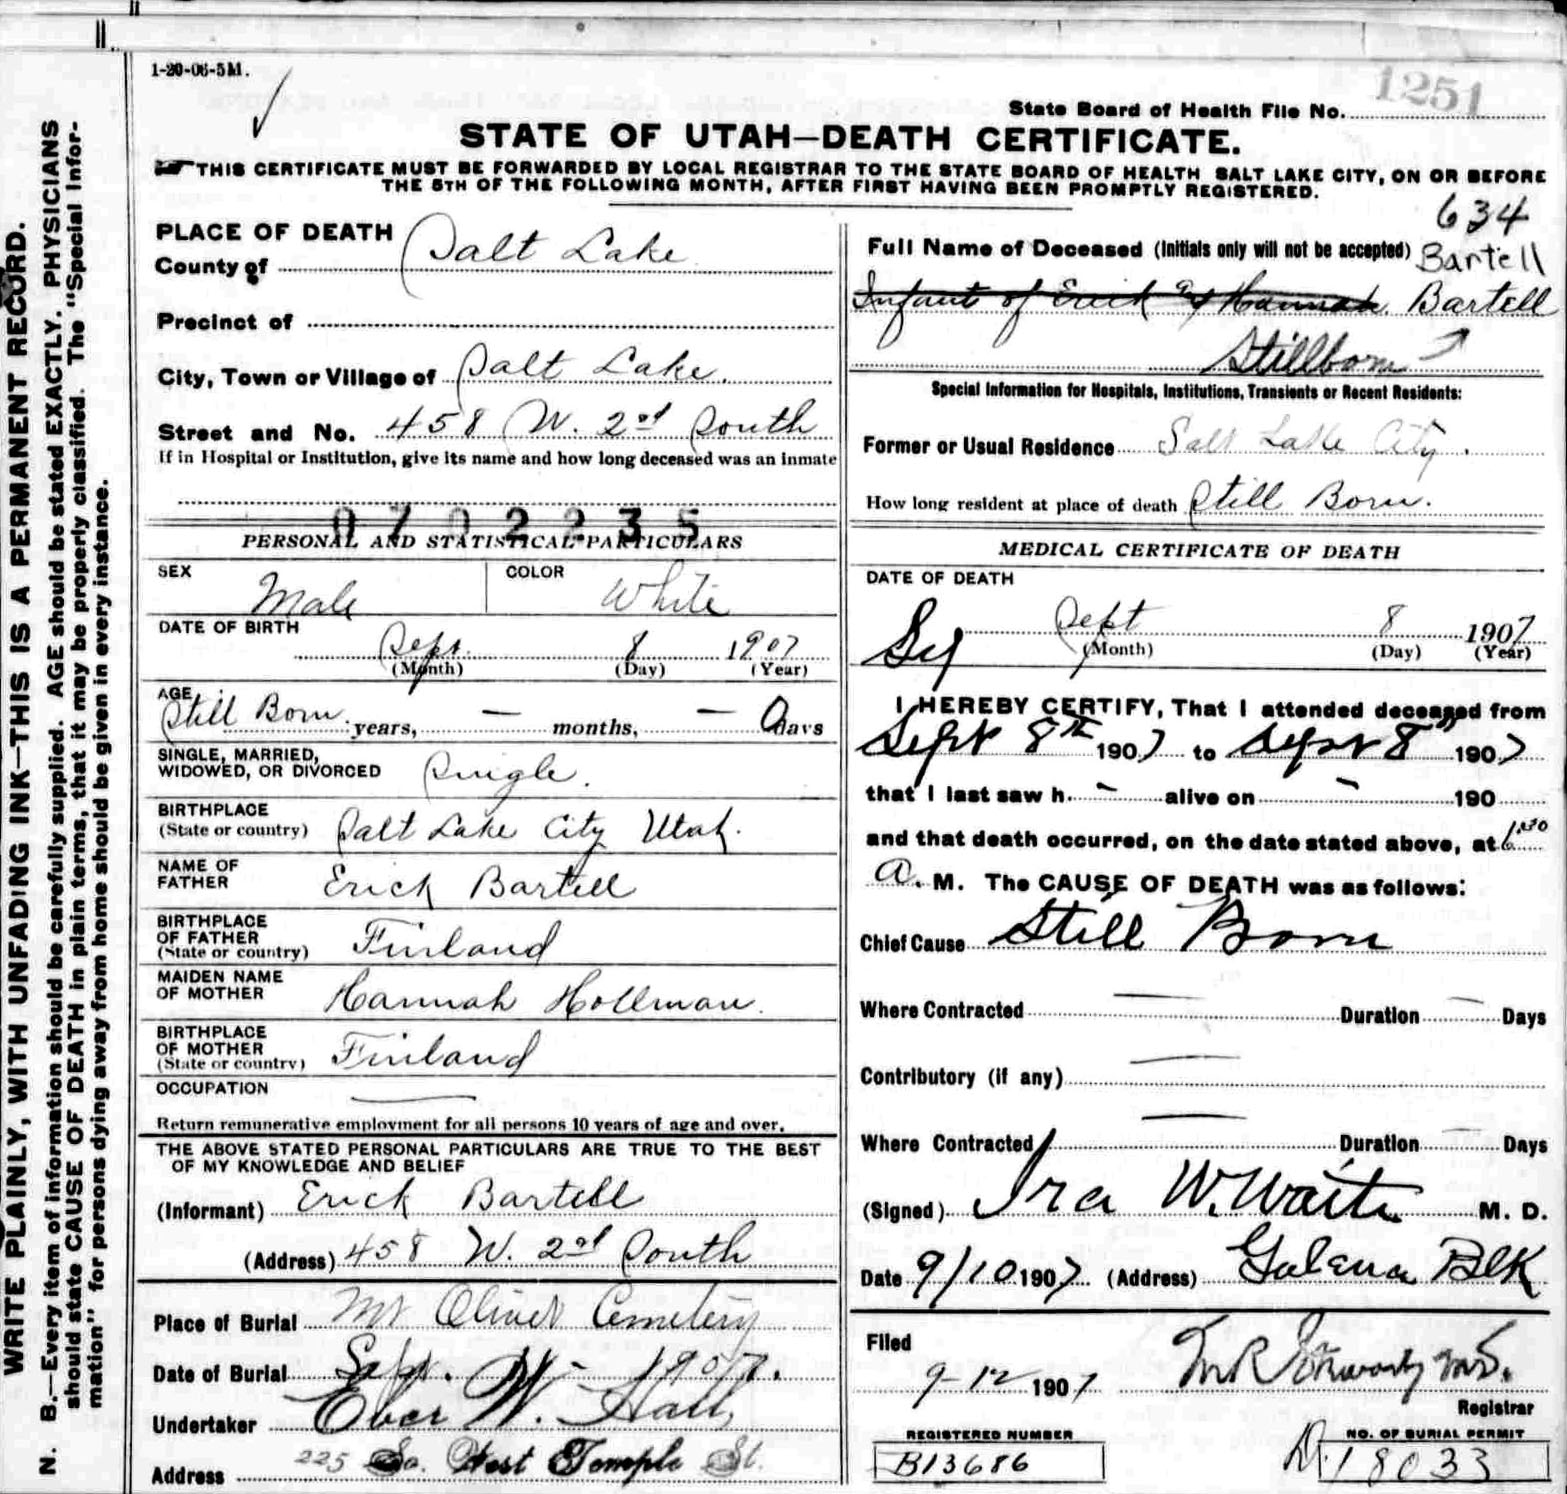 1-20-06-5M.
State Board of Health File No. 1251
STATE OF UTAH—DEATH CERTIFICATE.
THIS CERTIFICATE MUST BE FORWARDED BY LOCAL REGISTRAR TO THE STATE BOARD OF HEALTH SALT LAKE CITY, ON OR BEFORE
THE 5TH OF THE FOLLOWING MONTH, AFTER FIRST HAVING BEEN PROMPTLY REGISTERED.
WRITE PLAINLY, WITH UNFADING INK—THIS IS A PERMANENT RECORD.
N. B.—Every item of information should be carefully supplied. AGE should be stated EXACTLY. PHYSICIANS
should state CAUSE OF DEATH in plain terms, that it may be properly classified. The "Special Infor-
mation" for persons dying away from home should be given in every instance.
PLACE OF DEATH
County of Salt Lake
Precinct of
City, Town or Village of Salt Lake.
Street and No. 458 W. 2nd South
If in Hospital or Institution, give its name and how long deceased was an inmate
0702235
PERSONAL AND STATISTICAL PARTICULARS
SEX Male COLOR White
DATE OF BIRTH
Sept. 8 1907
(Month) (Day) (Year)
AGE
Still Born. years, — months, — 0 days
SINGLE, MARRIED,
WIDOWED, OR DIVORCED Single.
BIRTHPLACE
(State or country) Salt Lake City Utah.
NAME OF
FATHER Erick Bartell
BIRTHPLACE
OF FATHER
(State or country) Finland
MAIDEN NAME
OF MOTHER Hannah Hollman.
BIRTHPLACE
OF MOTHER
(State or country) Finland
OCCUPATION —
Return remunerative employment for all persons 10 years of age and over.
THE ABOVE STATED PERSONAL PARTICULARS ARE TRUE TO THE BEST
OF MY KNOWLEDGE AND BELIEF
(Informant) Erick Bartell
(Address) 458 W. 2nd South
Place of Burial Mt Olivet Cemetery
Date of Burial Sept. 1907.
Undertaker Eber W. Hall,
Address 225 So. West Temple St.
634
Full Name of Deceased (Initials only will not be accepted) Bartell
Infant of Erick & Hannah Bartell
Stillborn
Special Information for Hospitals, Institutions, Transients or Recent Residents:
Former or Usual Residence Salt Lake City.
How long resident at place of death Still Born.
MEDICAL CERTIFICATE OF DEATH
DATE OF DEATH
Sept 8 1907
(Month) (Day) (Year)
I HEREBY CERTIFY, That I attended deceased from
Sept 8th 1907 to Sept 8" 1907
that I last saw h. - alive on - 190
and that death occurred, on the date stated above, at 6:30
a. M. The CAUSE OF DEATH was as follows:
Chief Cause Still Born
Where Contracted — Duration — Days
Contributory (if any) —
Where Contracted — Duration — Days
(Signed) Ira W. Waite M. D.
Date 9/10 1907 (Address) Galena Blk
Filed
9-12 1907
Registrar
REGISTERED NUMBER
B13686
NO. OF BURIAL PERMIT
D. 18033